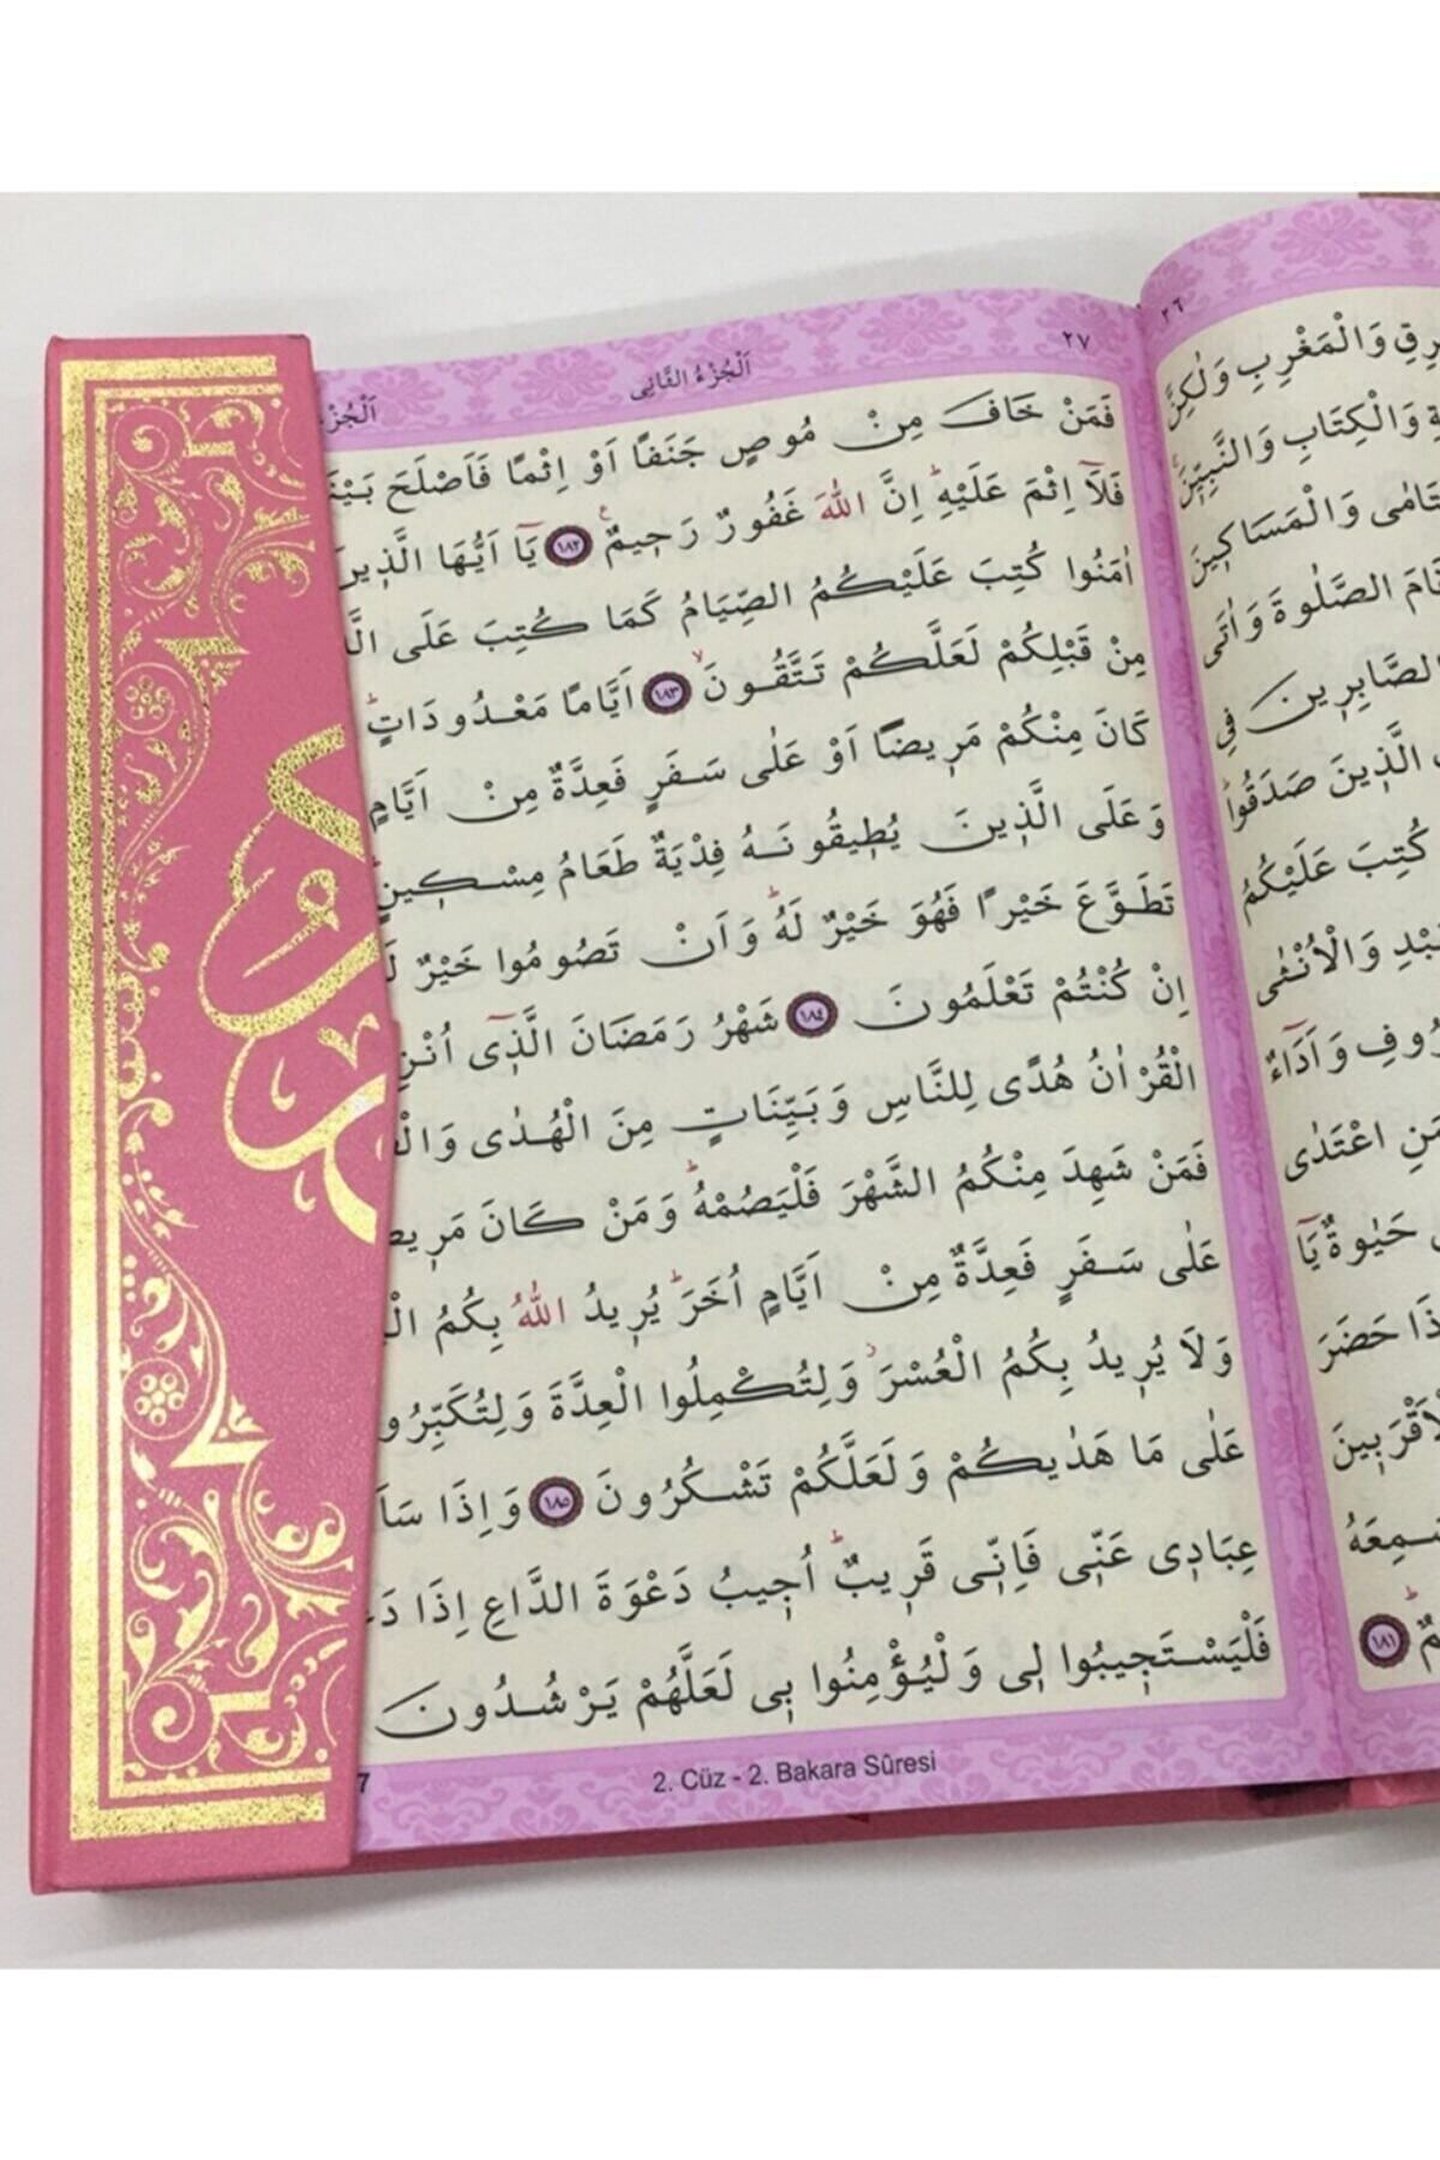 ٢٧
اَلْجُزْءُ الثَّانِى
فَمَنْ خَافَ مِنْ مُوصٍ جَنَفًا اَوْ اِثْمًا فَاَصْلَحَ
فَلَٓا اِثْمَ عَلَيْهِۜ اِنَّ اللّٰهَ غَفُورٌ رَحٖيمٌ ﴿١٨٢﴾ يَٓا اَيُّهَا الَّذٖينَ
اٰمَنُوا كُتِبَ عَلَيْكُمُ الصِّيَامُ كَمَا كُتِبَ عَلَى
مِنْ قَبْلِكُمْ لَعَلَّكُمْ تَتَّقُونَۙ ﴿١٨٣﴾ اَيَّامًا مَعْدُودَاتٍۜ
كَانَ مِنْكُمْ مَرٖيضًا اَوْ عَلٰى سَفَرٍ فَعِدَّةٌ مِنْ اَيَّامٍ
وَعَلَى الَّذٖينَ يُطٖيقُونَهُ فِدْيَةٌ طَعَامُ مِسْكٖينٍۜ
تَطَوَّعَ خَيْرًا فَهُوَ خَيْرٌ لَهُۜ وَاَنْ تَصُومُوا خَيْرٌ
اِنْ كُنْتُمْ تَعْلَمُونَ ﴿١٨٤﴾ شَهْرُ رَمَضَانَ الَّذٖٓى
الْقُرْاٰنُ هُدًى لِلنَّاسِ وَبَيِّنَاتٍ مِنَ الْهُدٰى
فَمَنْ شَهِدَ مِنْكُمُ الشَّهْرَ فَلْيَصُمْهُۜ وَمَنْ كَانَ
عَلٰى سَفَرٍ فَعِدَّةٌ مِنْ اَيَّامٍ اُخَرَۜ يُرٖيدُ اللّٰهُ بِكُمُ
وَلَا يُرٖيدُ بِكُمُ الْعُسْرَۘ وَلِتُكْمِلُوا الْعِدَّةَ
عَلٰى مَا هَدٰيكُمْ وَلَعَلَّكُمْ تَشْكُرُونَ ﴿١٨٥﴾ وَاِذَا
عِبَادٖى عَنّٖى فَاِنّٖى قَرٖيبٌۜ اُجٖيبُ دَعْوَةَ الدَّاعِ اِذَا
فَلْيَسْتَجٖيبُوا لٖى وَلْيُؤْمِنُوا بٖى لَعَلَّهُمْ يَرْشُدُونَ
2. Cüz - 2. Bakara Sûresi
٢٦
وَالْمَغْرِبِ وَلٰكِنَّ
وَالْكِتَابِ وَالنَّبِيّٖنَۚ
وَالْمَسَاكٖينَ
الصَّلٰوةَ وَاٰتَى
الصَّابِرٖينَ فِى
الَّذٖينَ صَدَقُواۜ
كُتِبَ عَلَيْكُمُ
وَالْاُنْثٰى
وَاَدَٓاءٌ
اعْتَدٰى
حَيٰوةٌ يَٓا
حَضَرَ
١٨١